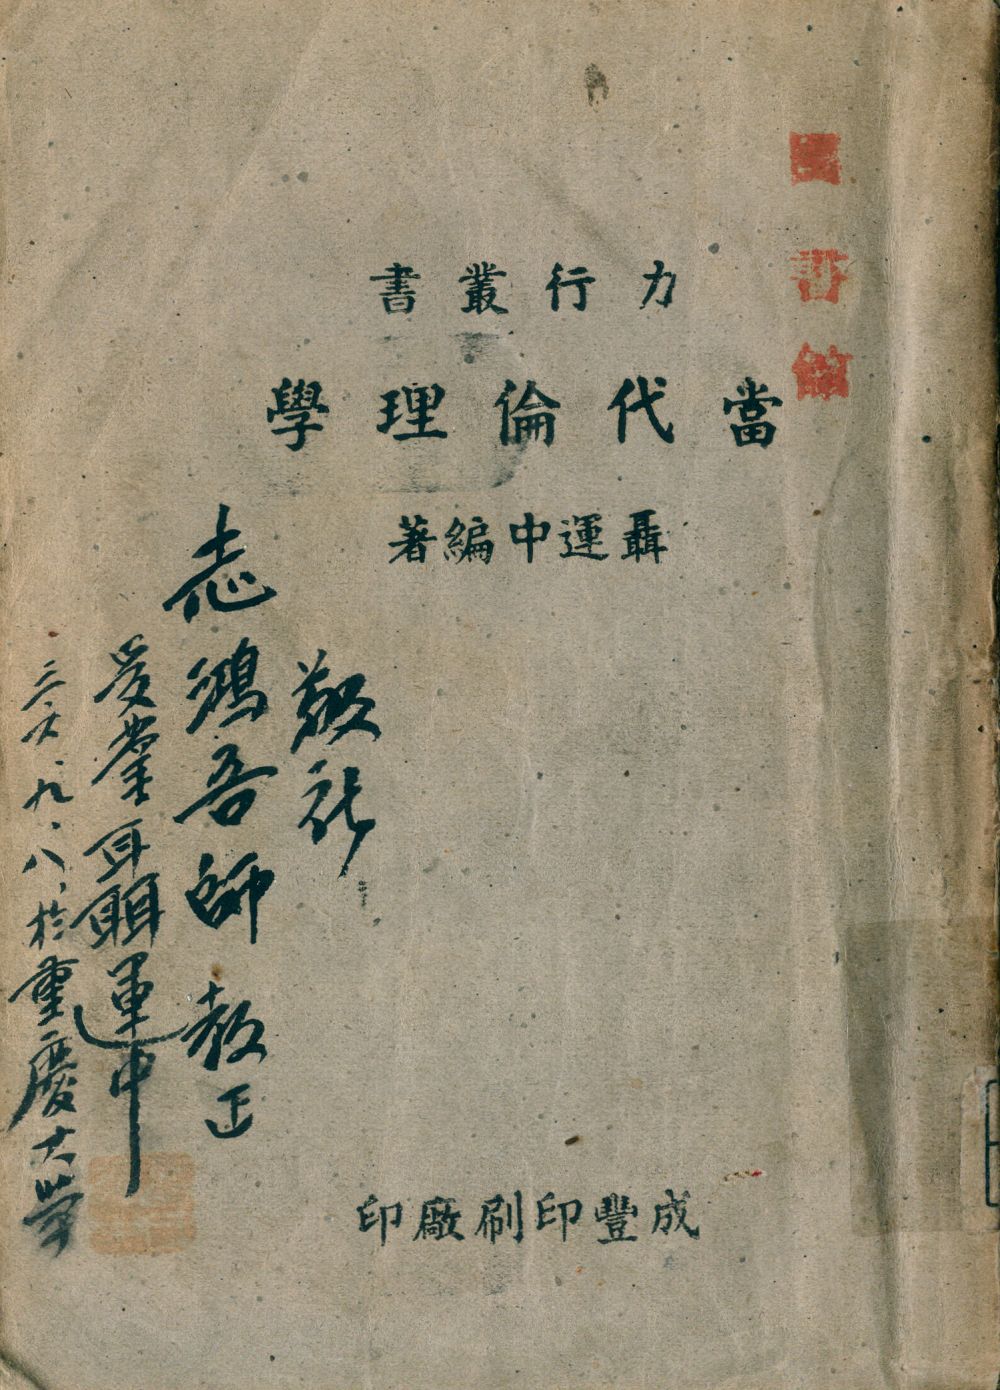 書館
力行叢書
當代倫理學
聶運中編著
敬祈
志鴻吾師教正
受業聶運中
三六、九、八、於重慶大學
成豐印刷廠印